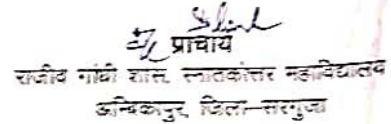 प्राचार्य
राजीव गांधी शास. स्नातकोत्तर महाविद्यालय
अम्बिकापुर, जिला-सरगुजा